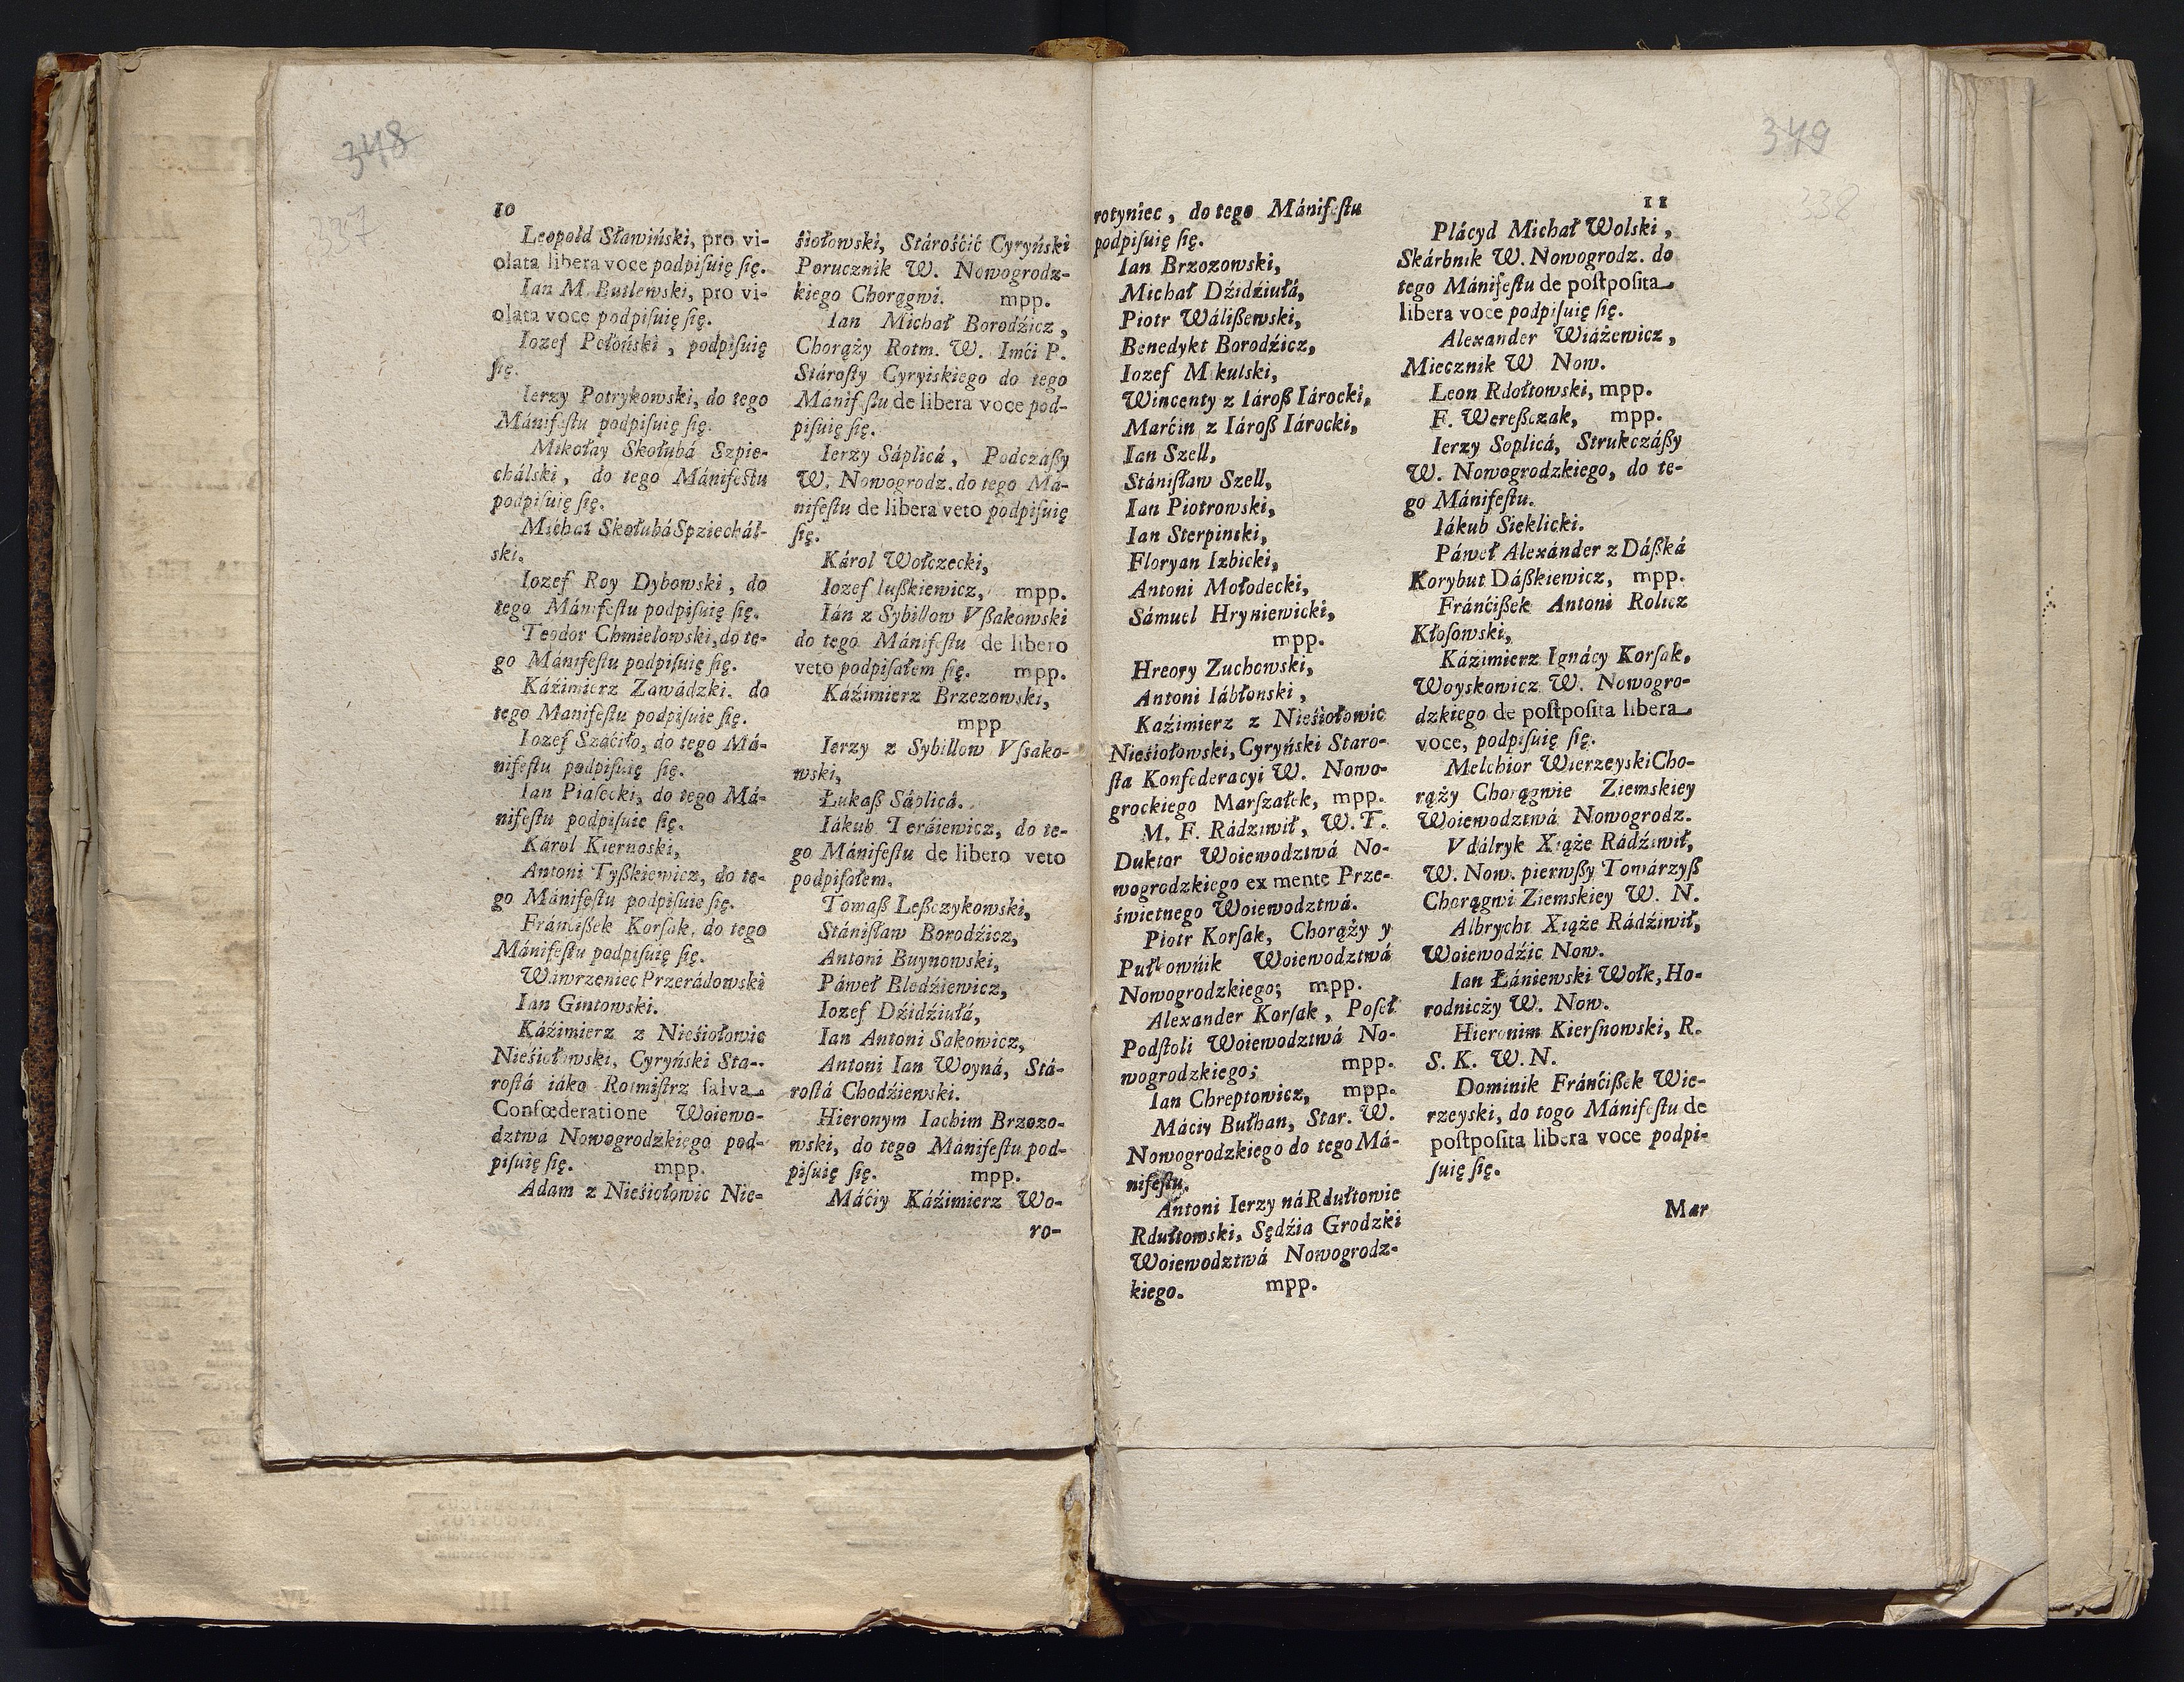 348
337
10
Leopold Sławiński, pro vi-
olata libera voce podpiſuię ſię.
Ian M. Butlewski, pro vi-
olata voce podpiſuię ſię.
Iozef Połoński, podpiſuię
ſię.
Ierzy Potrykowski, do tego
Mánifeſtu podpiſuię ſię.
Mikołay Skołubá Szpie-
chálski, do tego Mánifeſtu
podpiſuię ſię.
Michał Skołubá Spziechál-
ski.
Iozef Roy Dybowski, do
tego Mánifeſtu podpiſuię ſię.
Teodor Chmielowski, do te-
go Mánifeſtu podpiſuię ſię.
Káźimierz Zawádzki, do
tego Manifeſtu podpiſuie ſię.
Iozef Száćiło, do tego Má-
nifeſtu podpiſuię ſię.
Ian Piaſecki, do tego Má-
nifeſtu podpiſuie ſię.
Károl Kiernoski,
Antoni Tyßkiewicz, do te-
go Mánifeſtu podpiſuie ſię.
Fránćißek Korſak, do tego
Mánifeſtu podpiſuię ſię.
Wáwrzeniec Przerádowski
Ian Gintowski.
Káźimierz z Nieśiołowic
Nieśiołowski, Cyryński Sta-
roſtá iáko Rotmiſtrz ſalva
Confœderatione Woiewo-
dztwá Nowogrodzkiego pod-
piſuię ſię. mpp.
Adam z Nieśiołowic Nie-
śiołowski, Stárośćić Cyryński
Porucznik W. Nowogrodz-
kiego Chorągwi. mpp.
Ian Michał Borodźicz,
Chorąży Rotm. W. Imći P.
Stároſty Cyryiskiego do tego
Mánifeſtu de libera voce pod-
piſuię ſię.
Ierzy Sáplicá, Podczáßy
W. Nowogrodz. do tego Má-
nifeſtu de libera veto podpiſuię
ſię.
Károl Wołczecki,
Iozef Iußkiewicz, mpp.
Ián z Sybillow Vßakowski
do tego Mánifeſtu de libero
veto podpiſałem ſię. mpp.
Káźimierz Brzezowski,
mpp
Ierzy z Sybillow Vſsako-
wski,
Łukaß Sáplicá.
Iákub Teráiewicz, do te-
go Mánifeſtu de libero veto
podpiſałem.
Tomaß Leßczykowski,
Stániſław Borodźicz,
Antoni Buynowski,
Páweł Bledźiewicz,
Iozef Dźidźiułá,
Ian Antoni Sakowicz,
Antoni Ian Woyná, Stá-
roſtá Chodźiewski.
Hieronym Iachim Brzozo-
wski, do tego Mánifeſtu pod-
piſuię ſię. mpp.
Máćiy Káźimierz Wo-
ro-
349
338
11
rotyniec, do tego Mánifeſtu
podpiſuię ſię.
Ian Brzozowski,
Michał Dźidźiułá,
Piotr Wálißewski,
Benedykt Borodźicz,
Iozef Mikulski,
Wincenty z Iároß Iárocki,
Marćin z Iároß Iárocki,
Ian Szell,
Stániſław Szell,
Ian Piotrowski,
Ian Sterpinski,
Floryan Izbicki,
Antoni Mołodecki,
Sámuel Hryniewicki,
mpp.
Hreory Zuchowski,
Antoni Iábłonski,
Kaźimierz z Nieśiołowic
Nieśiołowski, Cyryński Staro-
ſta Konfederacyi W. Nowo-
grockiego Marſzałek, mpp.
M. F. Rádziwił, W. T.
Duktor Woiewodztwá No-
wogrodzkiego ex mente Prze-
świetnego Woiewodztwá.
Piotr Korſak, Chorąży y
Pułkowńik Woiewodztwá
Nowogrodzkiego; mpp.
Alexander Korſak, Poſeł
Podſtoli Woiewodztwá No-
wogrodzkiego; mpp.
Ian Chreptowicz, mpp.
Máciy Bułhan, Star. W.
Nowogrodzkiego do tego Má-
nifeſtu.
Antoni Ierzy ná Rdułtowie
Rdułtowski, Sędźia Grodzki
Woiewodztwá Nowogrodz-
kiego. mpp.
Plácyd Michał Wolski,
Skárbnik W. Nowogrodz. do
tego Mánifeſtu de poſtpoſita
libera voce podpiſuię ſię.
Alexander Wiáżewicz,
Miecznik W Now.
Leon Rdołtowski, mpp.
F. Wereßczak, mpp.
Ierzy Soplicá, Strukczáßy
W. Nowogrodzkiego, do te-
go Mánifeſtu.
Iákub Sieklicki.
Páweł Alexánder z Dáßká
Korybut Dáßkiewicz, mpp.
Fránćißek Antoni Rolicz
Kłoſowski,
Káźimierz Ignácy Korſak,
Woyskowicz W. Nowogro-
dzkiego de poſtpoſita libera
voce, podpiſuię ſię.
Melchior Wierzeyski Cho-
rąży Chorągwie Ziemskiey
Woiewodztwá Nowogrodz.
Vdálryk Xiąże Rádźiwił,
W. Now. pierwßy Towárzyß
Chorągwi Ziemskiey W. N.
Albrycht Xiąże Rádźiwił,
Woiewodźic Now.
Ian Łániewski Wołk, Ho-
rodniczy W. Now.
Hieronim Kierſnowski, R.
S. K. W. N.
Dominik Fránćißek Wie-
rzeyski, do togo Mánifeſtu de
poſtpoſita libera voce podpi-
ſuię ſię.
Mar